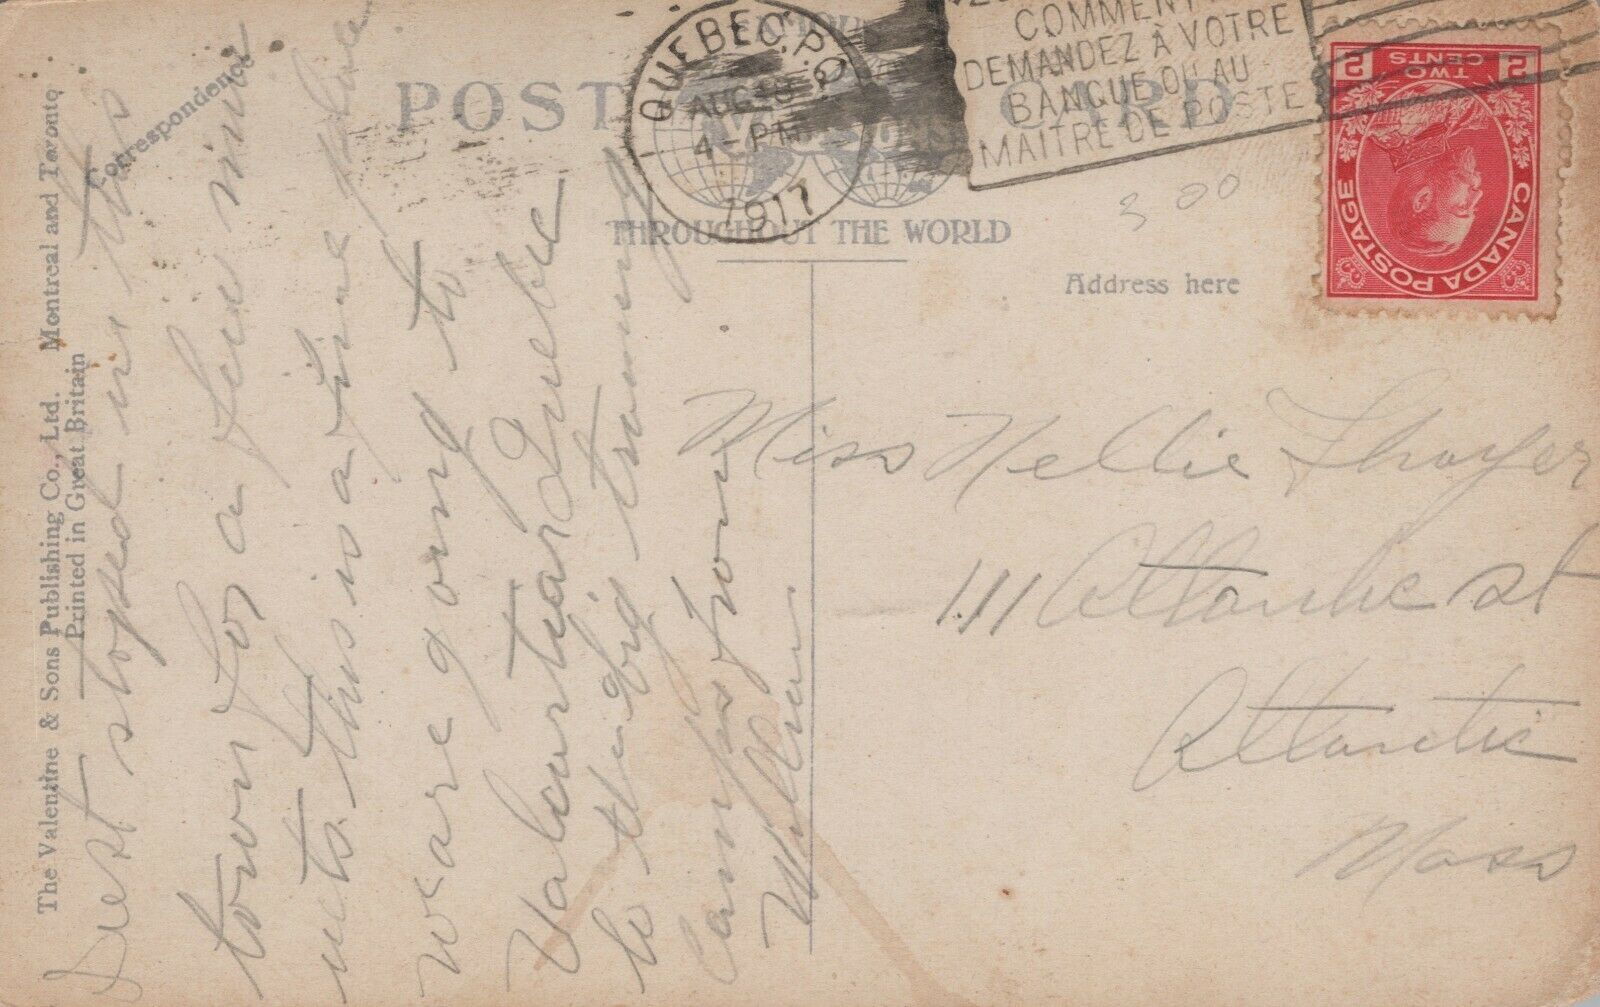 POST CARD
THROUGHOUT THE WORLD
QUEBEC, P.Q.
AUG
4 - PM
1917
COMMENT
DEMANDEZ À VOTRE
BANQUE OU AU
MAITRE DE POSTE
2 TWO CENTS 2
CANADA POSTAGE
300
Address here
Correspondence
The Valentine & Sons Publishing Co., Ltd. Montreal and Toronto
Printed in Great Britain
Just stoped in this
town for a few min
uets. this is a fine place
we are going to
Valcartiar Quebec
to the big training
camp from
William
Miss Nellie Thayer
111 Atlantic st
Atlantic
Mass